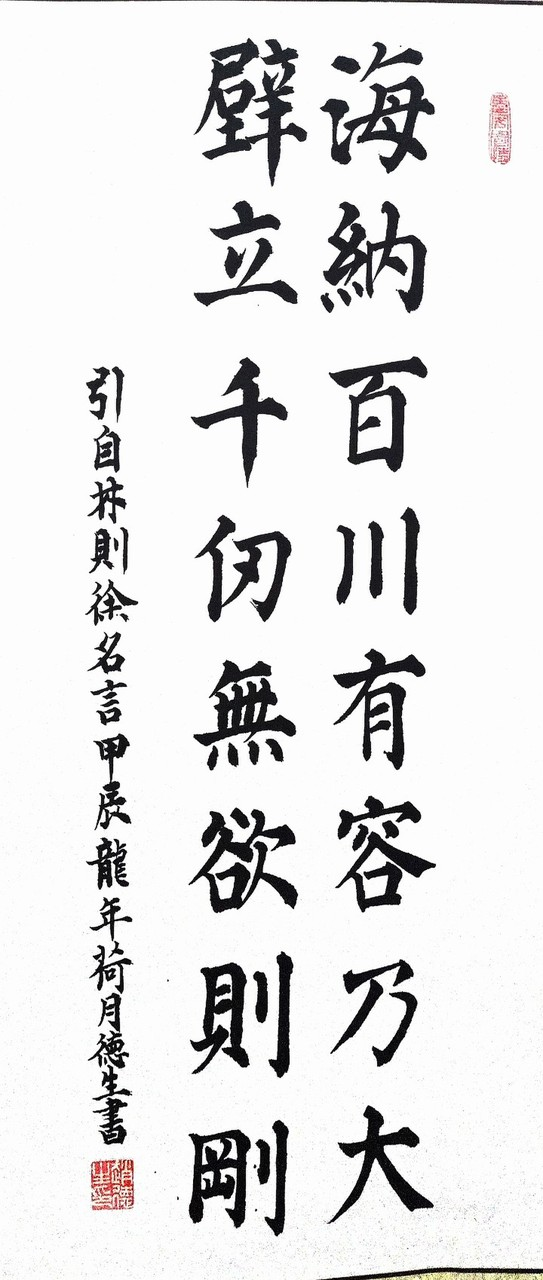 海納百川有容乃大
壁立千仞無欲則剛
引自林則徐名言甲辰龍年荷月德生書
趙德生印